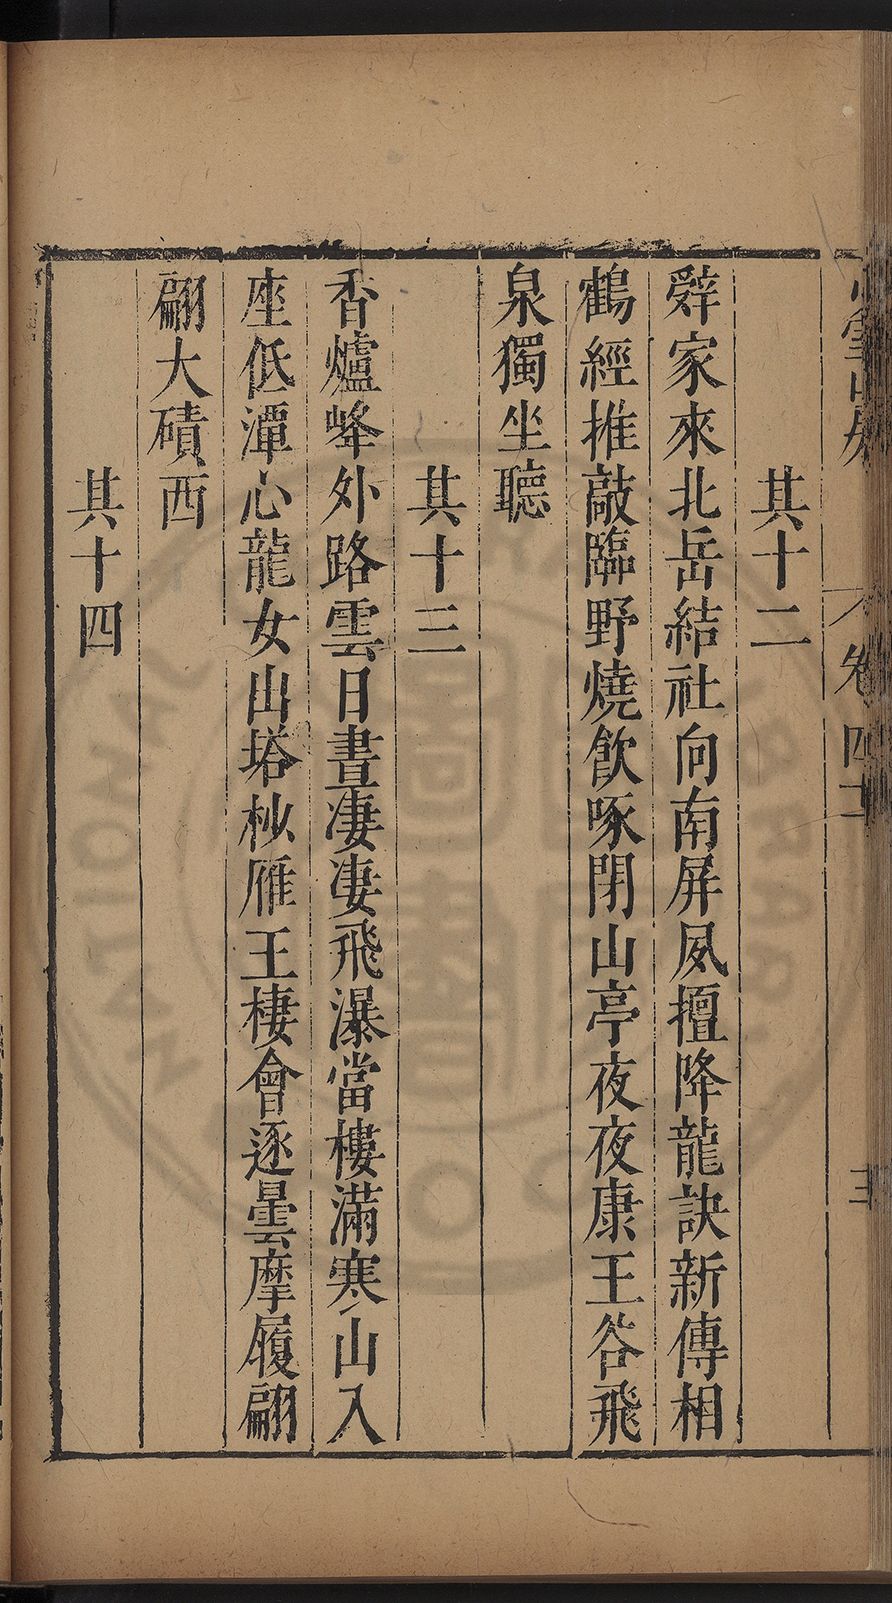 其十二
辤家來北岳結社向南屏夙擅降龍訣新傳相
鶴經推敲臨野燒飮啄閉山亭夜夜康王谷飛
泉獨坐聽
其十三
香爐峰外路雲日晝凄凄飛瀑當樓滿寒山入
座低潭心龍女出塔杪雁王棲會逐曇摩履翩
翩大磧西
其十四
卷四十
三